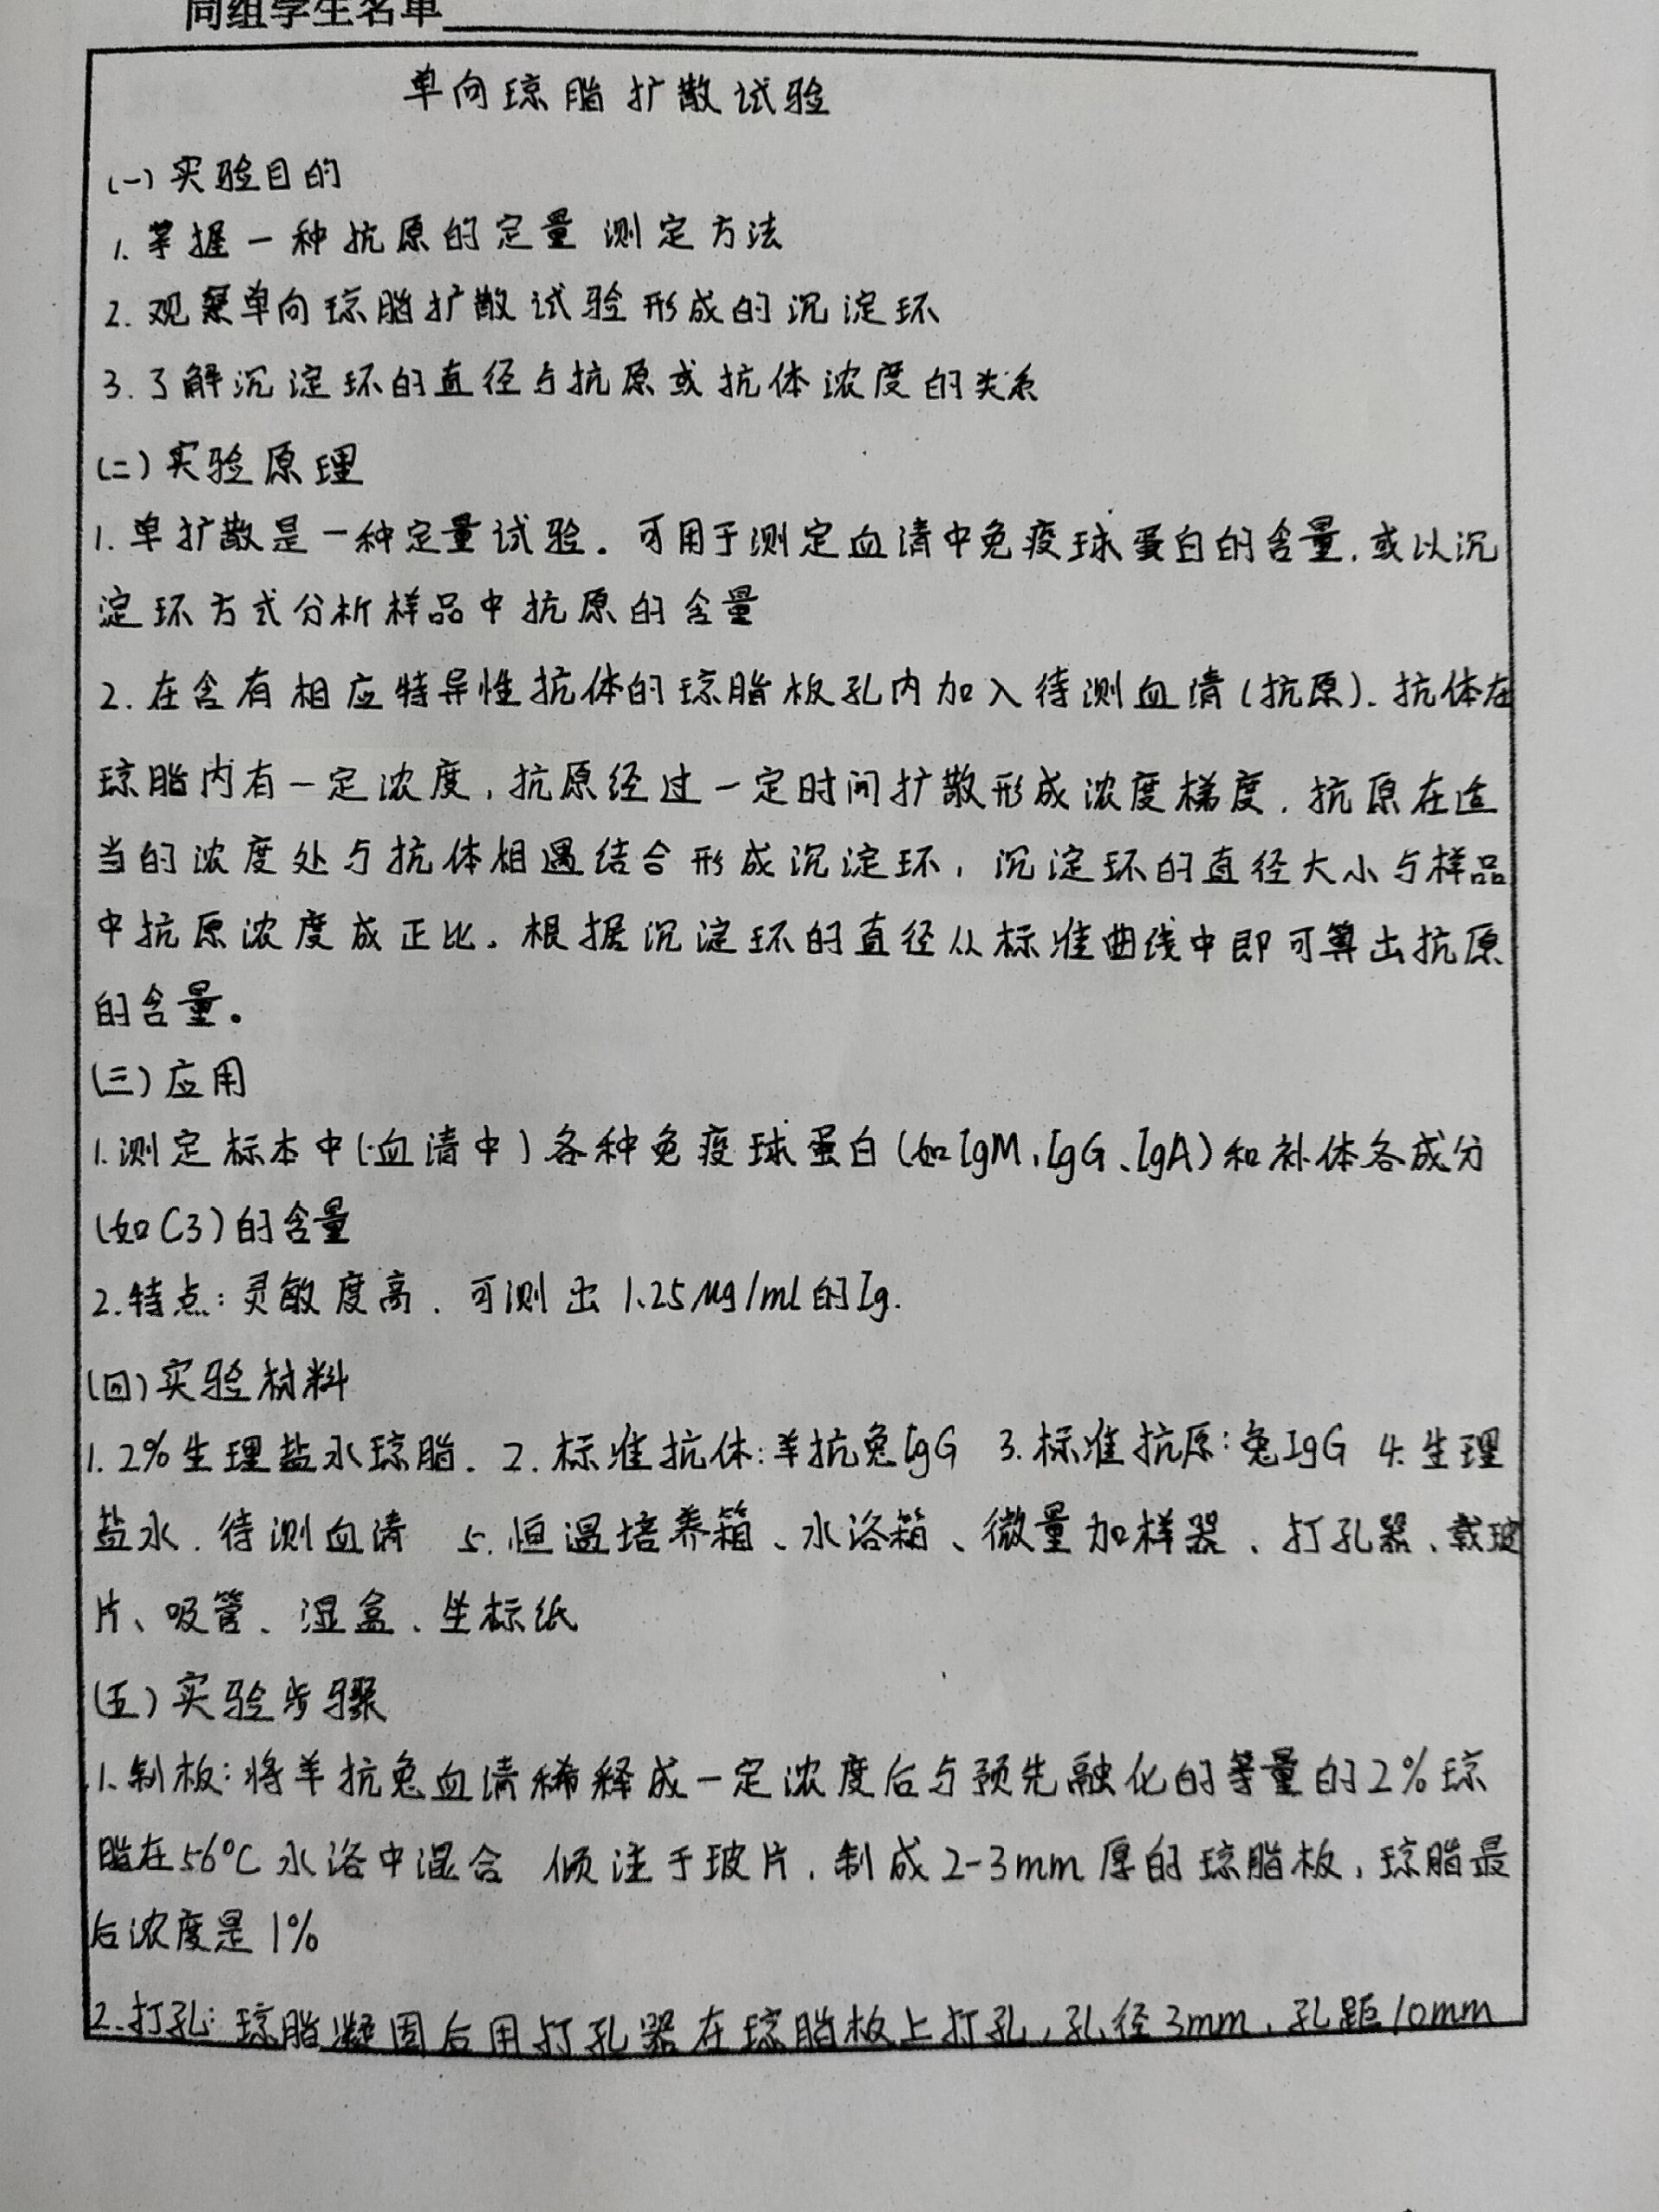 同组学生名单
单向琼脂扩散试验
(一)实验目的
1.掌握一种抗原的定量测定方法
2.观察单向琼脂扩散试验形成的沉淀环
3.了解沉淀环的直径与抗原或抗体浓度的关系
(二)实验原理
1.单扩散是一种定量试验。可用于测定血清中免疫球蛋白的含量,或以沉
淀环方式分析样品中抗原的含量
2.在含有相应特异性抗体的琼脂板孔内加入待测血清(抗原).抗体在
琼脂内有一定浓度,抗原经过一定时间扩散形成浓度梯度,抗原在适
当的浓度处与抗体相遇结合形成沉淀环,沉淀环的直径大小与样品
中抗原浓度成正比。根据沉淀环的直径从标准曲线中即可算出抗原
的含量。
(三)应用
1.测定标本中(血清中)各种免疫球蛋白(如IgM、IgG、IgA)和补体各成分
(如C3)的含量
2.特点:灵敏度高.可测出1.25μg/ml的Ig.
(四)实验材料
1.2%生理盐水琼脂. 2.标准抗体:羊抗兔IgG 3.标准抗原:兔IgG 4.生理
盐水.待测血清 5.恒温培养箱、水浴箱、微量加样器、打孔器、载玻
片、吸管、湿盒、坐标纸
(五)实验步骤
1.制板:将羊抗兔血清稀释成一定浓度后与预先融化的等量的2%琼
脂在56℃水浴中混合 倾注于玻片,制成2-3mm厚的琼脂板,琼脂最
后浓度是1%
2.打孔:琼脂凝固后用打孔器在琼脂板上打孔,孔径3mm,孔距10mm